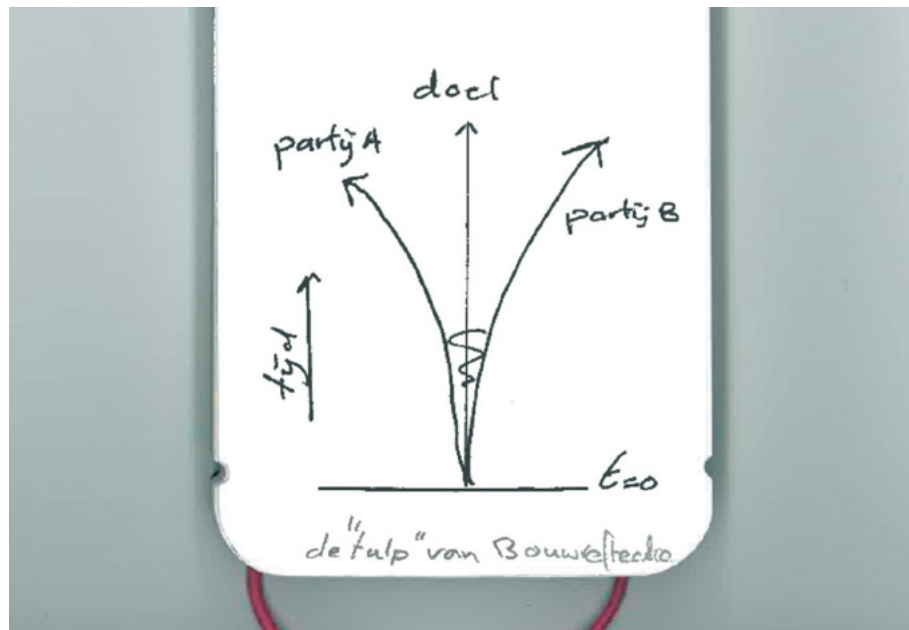 doel
partij A
partij B
tijd
t=0
de "tulp" van Bouwreflectie